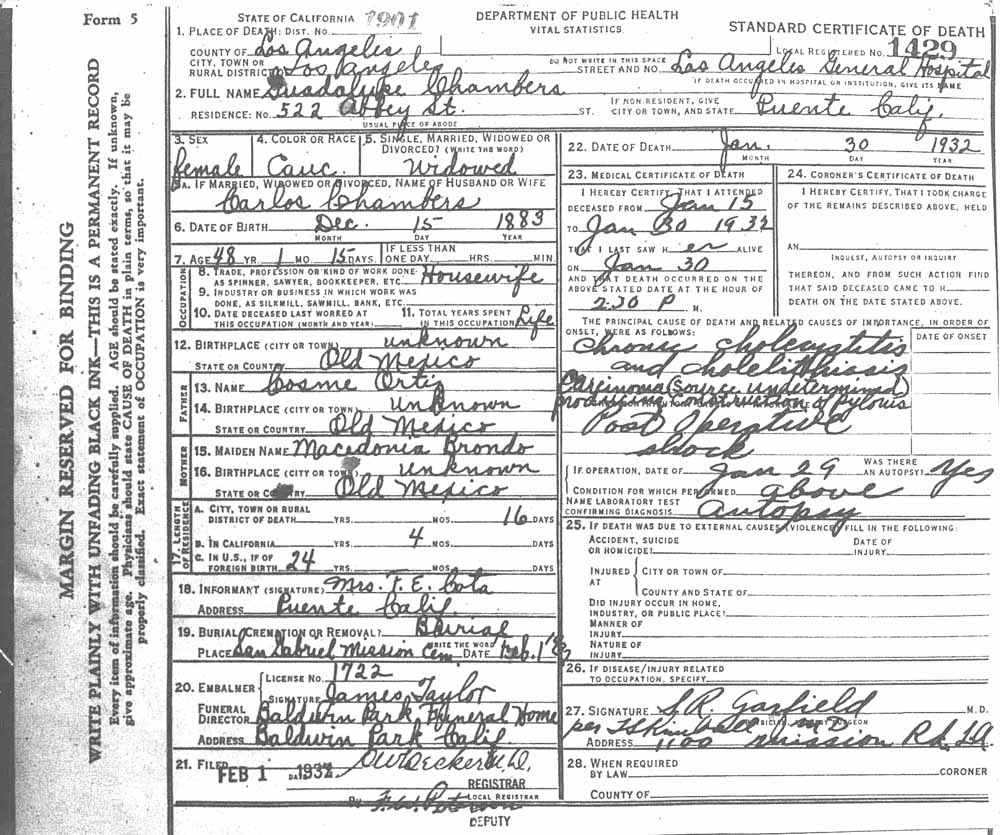 Form 5
MARGIN RESERVED FOR BINDING
WRITE PLAINLY WITH UNFADING BLACK INK—THIS IS A PERMANENT RECORD
Every item of information should be carefully supplied. AGE should be stated exactly. If unknown,
give approximate age. Physicians should state CAUSE OF DEATH in plain terms, so that it may be
properly classified. Exact statement of OCCUPATION is very important.
STATE OF CALIFORNIA 1901
DEPARTMENT OF PUBLIC HEALTH
VITAL STATISTICS
STANDARD CERTIFICATE OF DEATH
1. PLACE OF DEATH: DIST. NO.
COUNTY OF Los Angeles
LOCAL REGISTERED NO. 1429
CITY, TOWN OR
RURAL DISTRICT Los Angeles
DO NOT WRITE IN THIS SPACE
STREET AND NO. Los Angeles General Hospital
IF DEATH OCCURRED IN HOSPITAL OR INSTITUTION, GIVE ITS NAME
2. FULL NAME Guadalupe Chambers
RESIDENCE: NO. 522 Abbey St. ST.
USUAL PLACE OF ABODE
IF NON-RESIDENT, GIVE
CITY OR TOWN, AND STATE Puente Calif.
3. SEX
female
4. COLOR OR RACE
Cauc.
5. SINGLE, MARRIED, WIDOWED OR
DIVORCED? (WRITE THE WORD)
Widowed
5A. IF MARRIED, WIDOWED OR DIVORCED, NAME OF HUSBAND OR WIFE
Carlos Chambers
6. DATE OF BIRTH Dec. 15 1883
MONTH DAY YEAR
7. AGE 48 YR. 1 MO. 15 DAYS.
IF LESS THAN
ONE DAY HRS. MIN.
OCCUPATION
8. TRADE, PROFESSION OR KIND OF WORK DONE
AS SPINNER, SAWYER, BOOKKEEPER, ETC. Housewife
9. INDUSTRY OR BUSINESS IN WHICH WORK WAS
DONE, AS SILKMILL, SAWMILL, BANK, ETC.
10. DATE DECEASED LAST WORKED AT
THIS OCCUPATION (MONTH AND YEAR)
11. TOTAL YEARS SPENT
IN THIS OCCUPATION Life
12. BIRTHPLACE (CITY OR TOWN) unknown
STATE OR COUNTRY Old Mexico
FATHER
13. NAME Cosme Ortiz
14. BIRTHPLACE (CITY OR TOWN) unknown
STATE OR COUNTRY Old Mexico
MOTHER
15. MAIDEN NAME Macedonia Brondo
16. BIRTHPLACE (CITY OR TOWN) unknown
STATE OR COUNTRY Old Mexico
17. LENGTH
OF RESIDENCE
A. CITY, TOWN OR RURAL
DISTRICT OF DEATH YRS. MOS. 16 DAYS
B. IN CALIFORNIA YRS. 4 MOS. DAYS
C. IN U.S., IF OF
FOREIGN BIRTH 24 YRS. MOS. DAYS
18. INFORMANT (SIGNATURE) Mrs. F. E. Cota
ADDRESS Puente Calif.
19. BURIAL, CREMATION OR REMOVAL? Burial
WRITE THE WORD
PLACE San Gabriel Mission Cem DATE Feb. 1
20. EMBALMER
LICENSE NO. 1722
SIGNATURE James Taylor
FUNERAL
DIRECTOR Baldwin Park Funeral Home
ADDRESS Baldwin Park Calif.
21. FILED FEB 1 DATE 1932
REGISTRAR
LOCAL REGISTRAR
By
DEPUTY
22. DATE OF DEATH Jan. 30 1932
MONTH DAY YEAR
23. MEDICAL CERTIFICATE OF DEATH
I HEREBY CERTIFY, THAT I ATTENDED
DECEASED FROM Jan 15
TO Jan 30 1932
THAT I LAST SAW HER ALIVE
ON Jan 30
AND THAT DEATH OCCURRED ON THE
ABOVE STATED DATE AT THE HOUR OF
2:30 P M.
24. CORONER'S CERTIFICATE OF DEATH
I HEREBY CERTIFY, THAT I TOOK CHARGE
OF THE REMAINS DESCRIBED ABOVE, HELD
AN
INQUEST, AUTOPSY OR INQUIRY
THEREON, AND FROM SUCH ACTION FIND
THAT SAID DECEASED CAME TO H
DEATH ON THE DATE STATED ABOVE.
THE PRINCIPAL CAUSE OF DEATH AND RELATED CAUSES OF IMPORTANCE, IN ORDER OF
ONSET, WERE AS FOLLOWS:
DATE OF ONSET
Chronic cholecystitis
and cholelithiasis
Carcinoma (source undetermined)
producing obstruction of pylorus
Post Operative
shock
IF OPERATION, DATE OF Jan 29
WAS THERE
AN AUTOPSY? Yes
CONDITION FOR WHICH PERFORMED above
NAME LABORATORY TEST
CONFIRMING DIAGNOSIS Autopsy
25. IF DEATH WAS DUE TO EXTERNAL CAUSES (VIOLENCE) FILL IN THE FOLLOWING:
ACCIDENT, SUICIDE
OR HOMICIDE?
DATE OF
INJURY
INJURED
AT
CITY OR TOWN OF
COUNTY AND STATE OF
DID INJURY OCCUR IN HOME,
INDUSTRY, OR PUBLIC PLACE?
MANNER OF
INJURY
NATURE OF
INJURY
26. IF DISEASE/INJURY RELATED
TO OCCUPATION, SPECIFY
27. SIGNATURE S. R. Garfield M.D.
ADDRESS 1100 Mission Rd. L.A.
28. WHEN REQUIRED
BY LAW CORONER
COUNTY OF